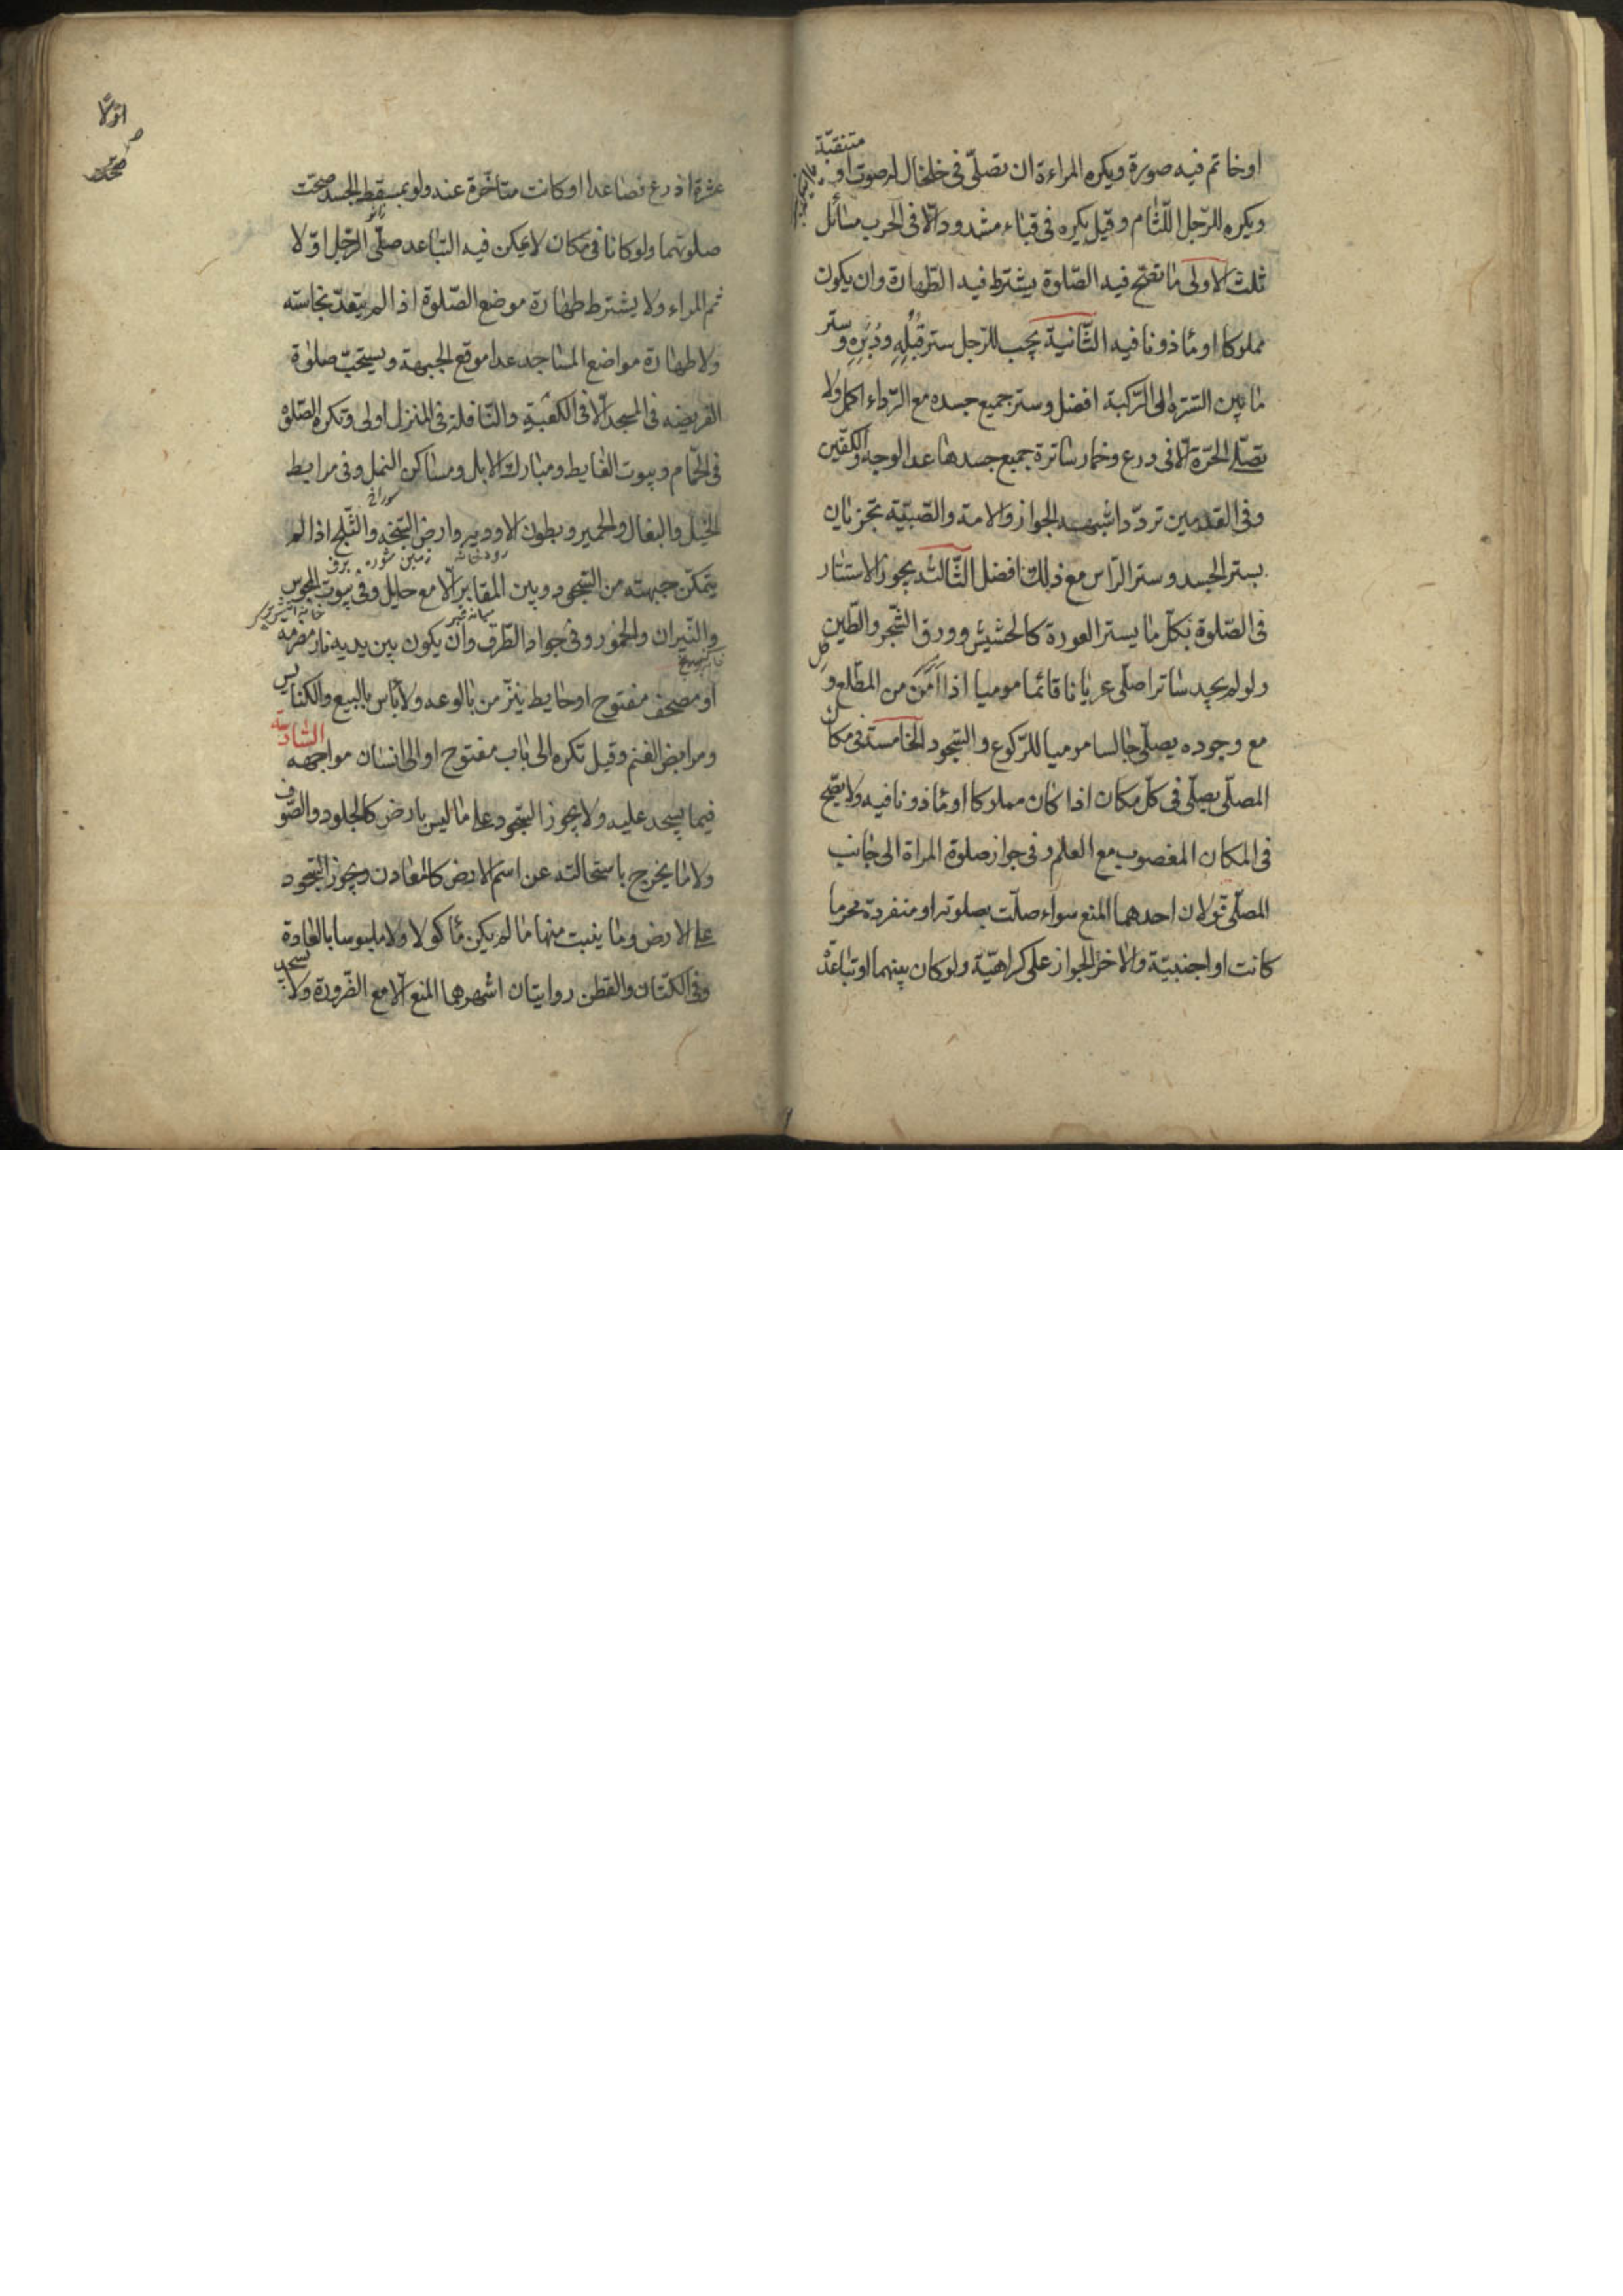 متنقبة
او خاتم فيه صورة ويكره المراءة ان تصلّى فى خلخال له صوت او
ويكره للرّجل اللّثام وقيل يكره فى قباء مشدود الّا فى الحرب مسائل
ثلث الاولى ما تصحّ فيه الصّلوة يشترط فيه الطّهارة وان يكون
مملوكا او مأذونا فيه الثّانية يجب للرّجل ستر قُبُلِهِ ودُبُرِهِ وستر
ما بين السّرّة الى الرّكبة افضل وستر جميع جسده مع الرّداء اكمل ولا
تصلّى الحرّة الّا فى درع وخمار ساترة جميع جسدها عدا الوجه والكفّين
وفى القدمين تردّد اشبهه الجواز والامة والصّبيّة تجزيان
بستر الجسد وستر الرّاس مع ذلك افضل الثّالثة يجوز الاستتار
فى الصّلوة بكلّ ما يستر العورة كالحشيش وورق الشّجر والطّين
ولو لم يجد ساترا صلّى عريانا قائما موميا اذا امن من المطّلع و
مع وجوده يصلّى جالسا موميا للرّكوع والسّجود الخامسة فى مكان
المصلّى يصلّى فى كلّ مكان اذا كان مملوكا او مأذونا فيه ولا يصّح
فى المكان المغصوب مع العلم وفى جواز صلوة المراة الى جانب
المصلّى قولان احدهما المنع سواء صلّت بصلوته او منفردة محرما
كانت او اجنبيّة والاخر الجواز على كراهيّة ولو كان بينهما او تباعد
عشرة اذرع فصاعدا او كانت متاخّرة عنه ولو بمسقط الجسد صحّت
صلوتهما ولو كانا فى مكان لا يمكن فيه التباعد صلّى الرّجل اوّلا
ثم المراء ولا يشترط طهارة موضع الصّلوة اذا لم يتعدّ نجاسته
ولا طهارة مواضع المساجد عدا موقع الجبهة ويستحبّ صلوة
الفريضه فى المسجد الّا فى الكعبة والنّافلة فى المنزل اولى وتكره الصّلوة
فى الحمّام وبيوت الغايط ومبارك الابل ومساكن النمل وفى مرابط
سوراخ
الخيل والبغال والحمير وبطون الاوديه وارض السّبخه والثّلج اذا لم
رودخانه زمين شوره برف
يتمكّن جبهته من السّجود وبين المقابر الّا مع حايل وفى بيوت المجوس
ميانه قبر
والنّيران والخمور وفى جواد الطّرق وان يكون بين يديه نار مضرمه
او مصحف مفتوح او حايط ينزّ من بالوعه ولا باس بالبيع والكنايس
ومرابض الغنم وقيل تكره الى باب مفتوح او الى انسان مواجهه السّادسة
فيما يسجد عليه ولا يجوز السّجود على ما ليس بارض كالجلود والصّوف
ولا ما يخرج باستحالته عن اسم الارض كالمعادن ويجوز السّجود
على الارض وما ينبت منها ما لم يكن مأكولا ولا ملبوسا بالعادة
وفى الكتّان والقطن روايتان اشهرهما المنع الّا مع الضّرورة ولا يسجد